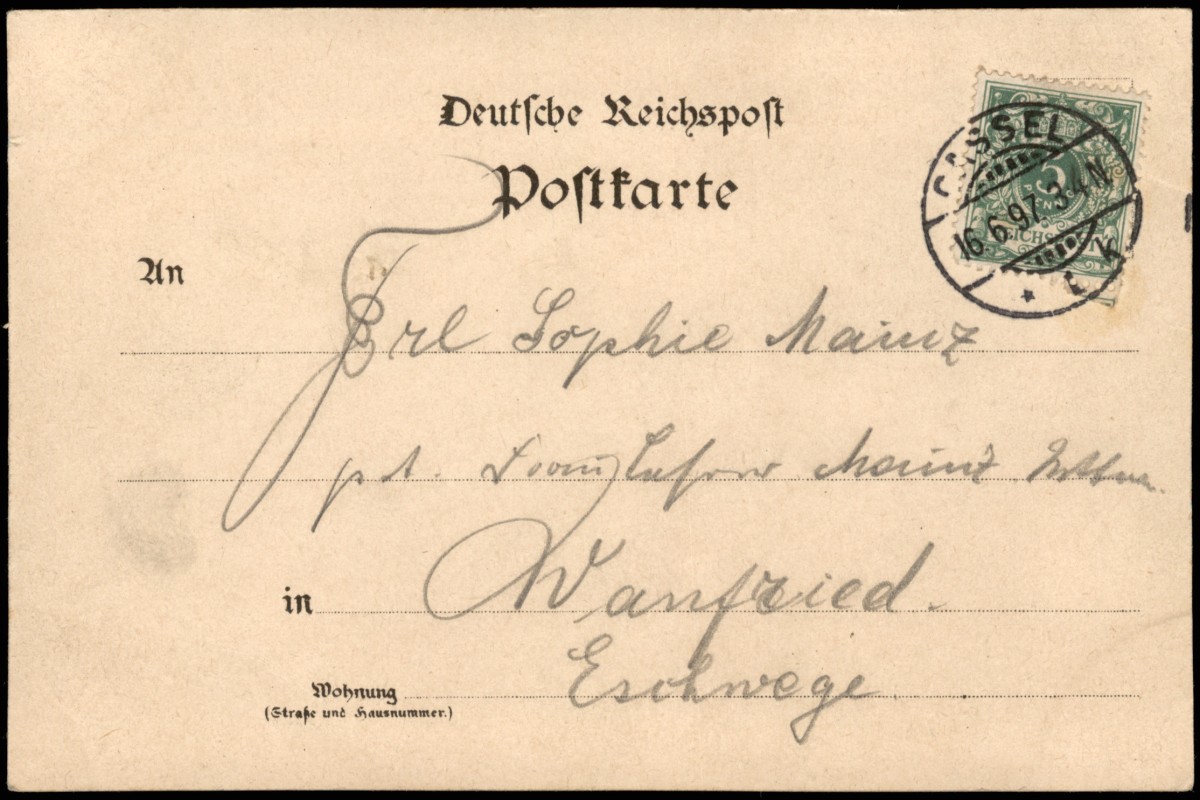 Deutsche Reichspost
Postkarte
CASSEL
16.6.97.3-4N.
* t k
5
PFENNIG
REICHSPOST
An
Frl Sophie Mainz
pt. Mainz
in Wanfried.
Eschwege
Wohnung
(Straße und Hausnummer.)